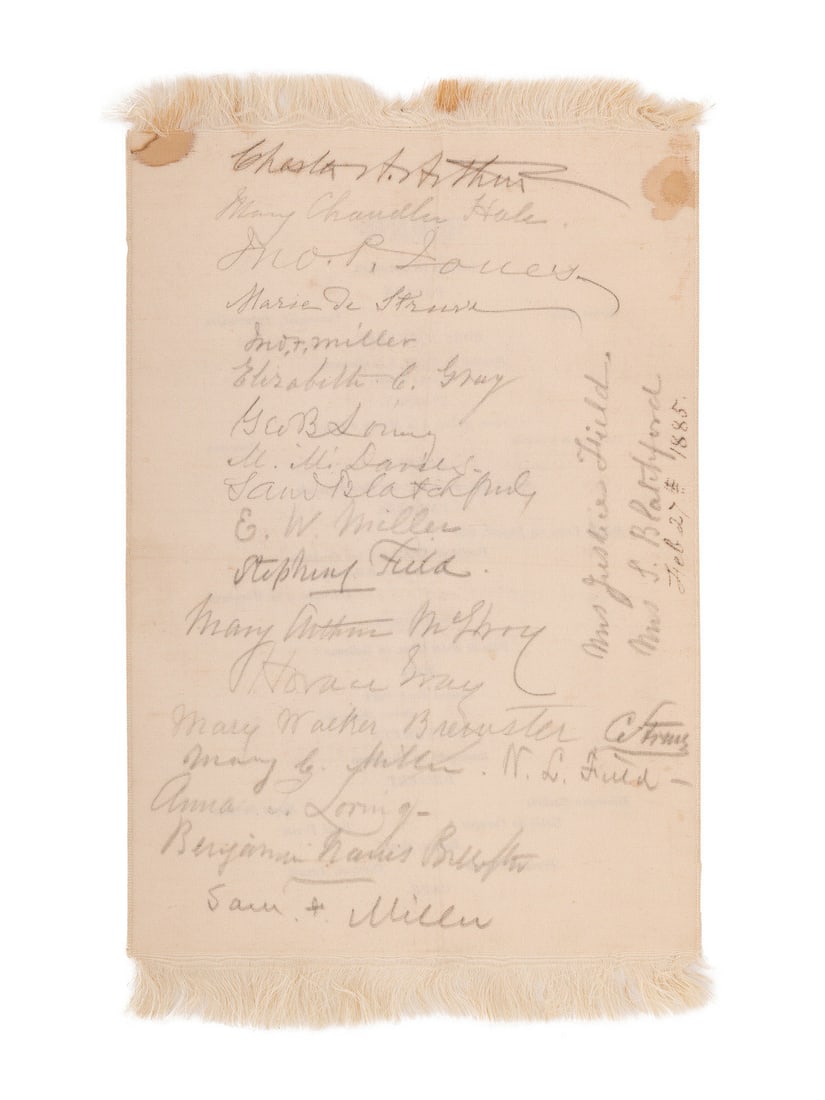 Chester A. Arthur
Mary Chandler Hale.
Jno. P. Jones
Marie de Struve
Jno. F. Miller
Elizabeth C. Gray
Geo B Loring
M. M. Davis.
Sam Blatchford
E. W. Miller
Stephen J Field.
Mary Arthur McElroy
Horace Gray
Mary Walker Brewster C Struve
Mary C. Miller. N. L. Field -
Anna S. Loring -
Benjamin Harris Brewster
Sam. F. Miller
Mrs Justice Field.
Mrs S. Blatchford
Feb 27th 1885.